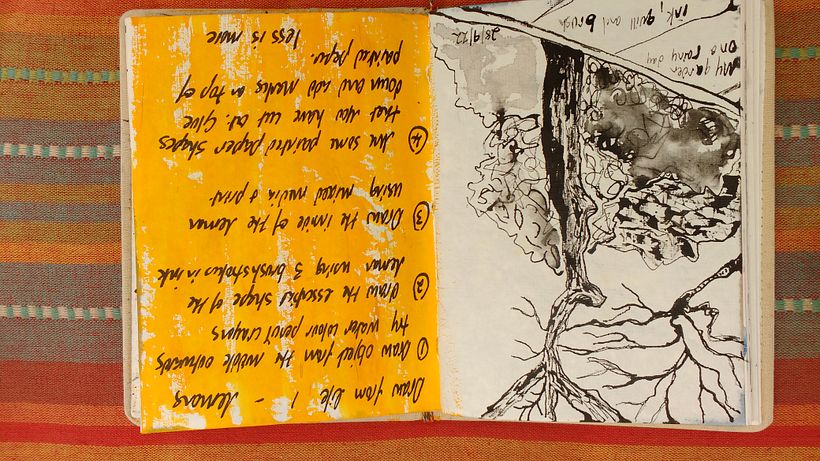 Draw from life 1 - lemons
① Draw object from the middle outwards
try water colour pencil crayons
② Draw the essential shape of the
lemon using 3 brushstrokes in ink
③ Draw the inside of the lemon
using mixed media & print
④ Use some painted paper shapes
that you have cut out. Glue
down and add marks on top of
painted paper.
less is more
My garden
on a rainy day
ink, quill and brush
28/9/22